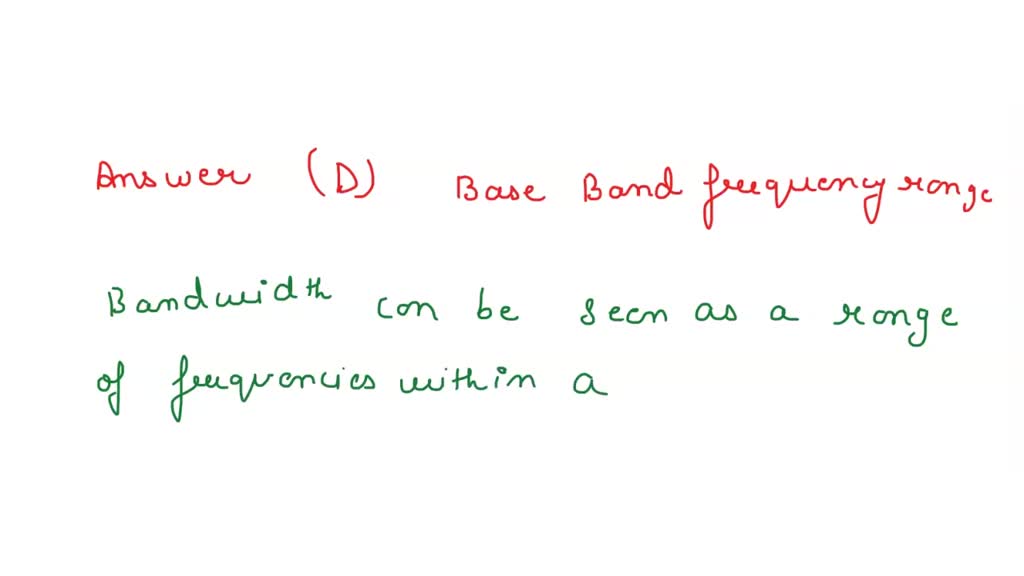 Answer (D) Base Band frequency range
Bandwidth can be seen as a range
of frequencies within a